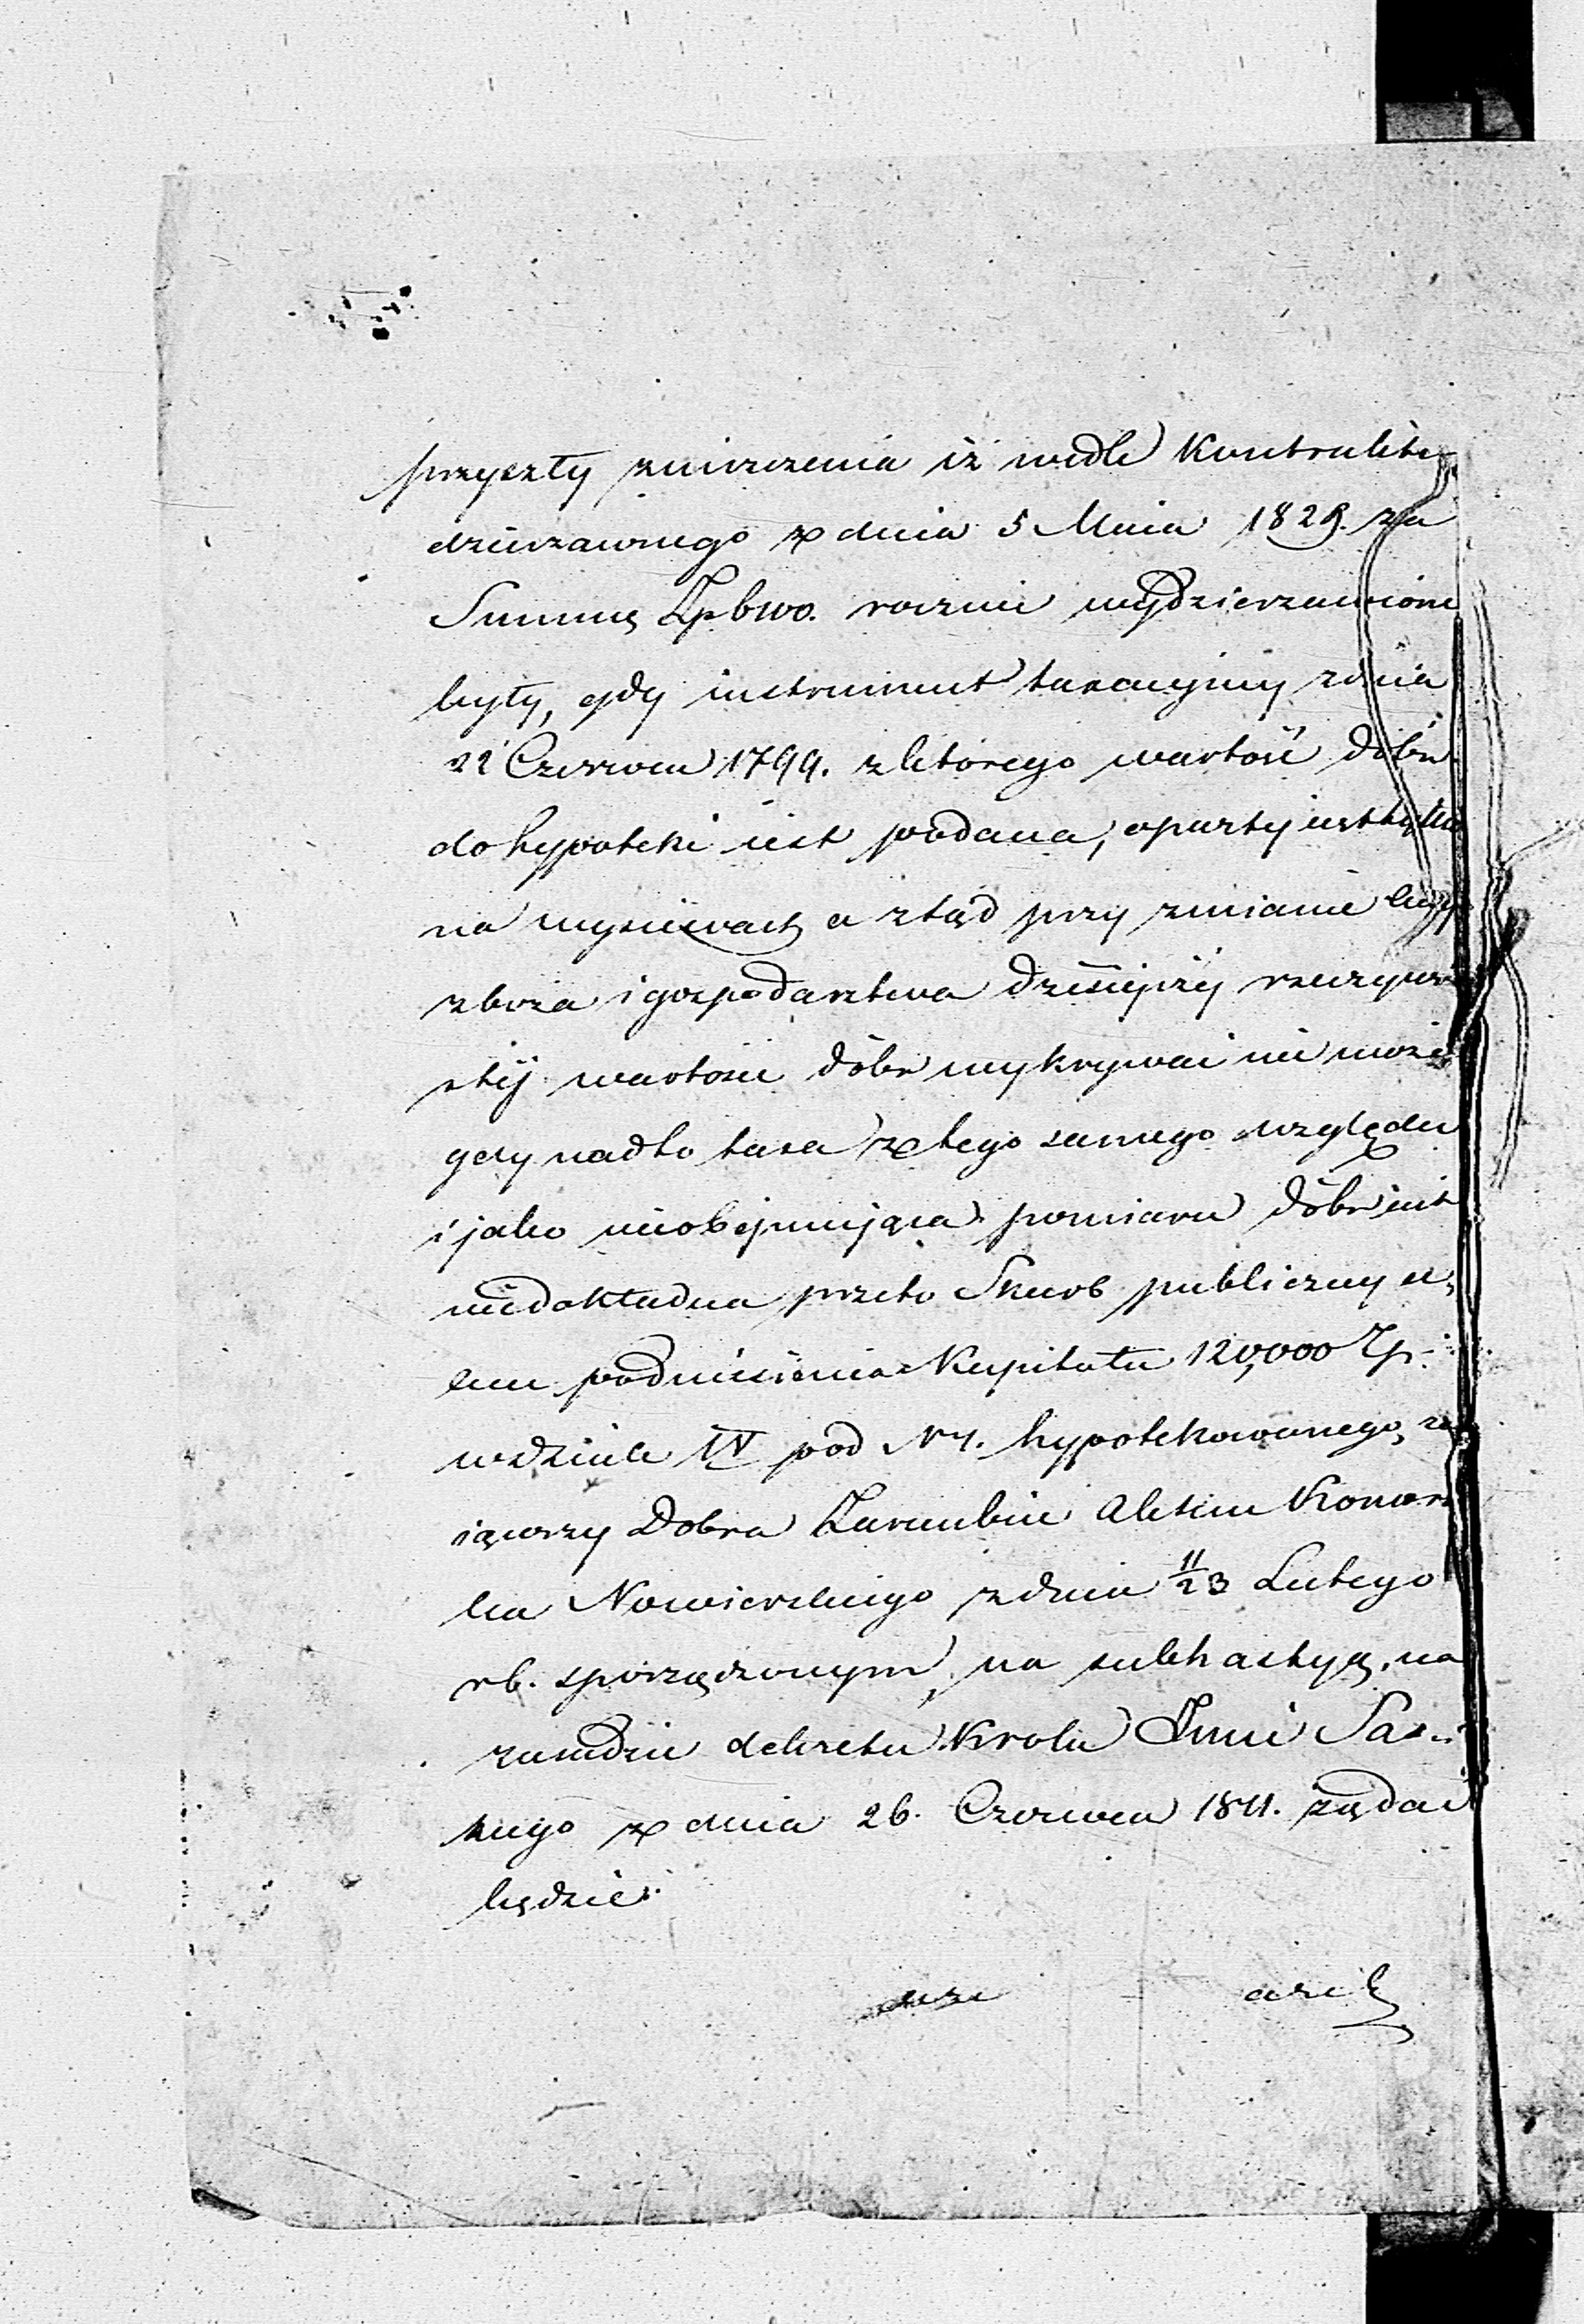 przyszły zniszczenia iż wedle Kontraktu
dzierzawnego z dnia 5 Maia 1829. za
Summę Zp rocznie wydzierzawione
były, gdy instrument taxacyiny zdnia
22 Czerwca 1799. zktórego wartość dóbr
do hypoteki iest podana, oparty iest tylko
na wysiewach a ztąd przy zmianie ceny
zboża i gospodarstwa dzisieyszéj rzeczywi
stéj wartości dóbr wykrywać nie może
gdy nadto taxa z tego samego względu
i jako nieobejmująca pomiaru dóbr iest
niedokładna przeto Skarb publiczny ce,
lem podniesienia Kapitału 120,000 Zp.
wdziale IV pod N 4. hypotekowanego, za
iąwszy Dobra Aktem Komor
ka zdnia 11/23 Lutego
rb. sporządzonym, na subhastyą, na
zasadzie dekretu Krola Jmci Sas
kiego z dnia 26. Czerwca 1811. żądać
będzie.